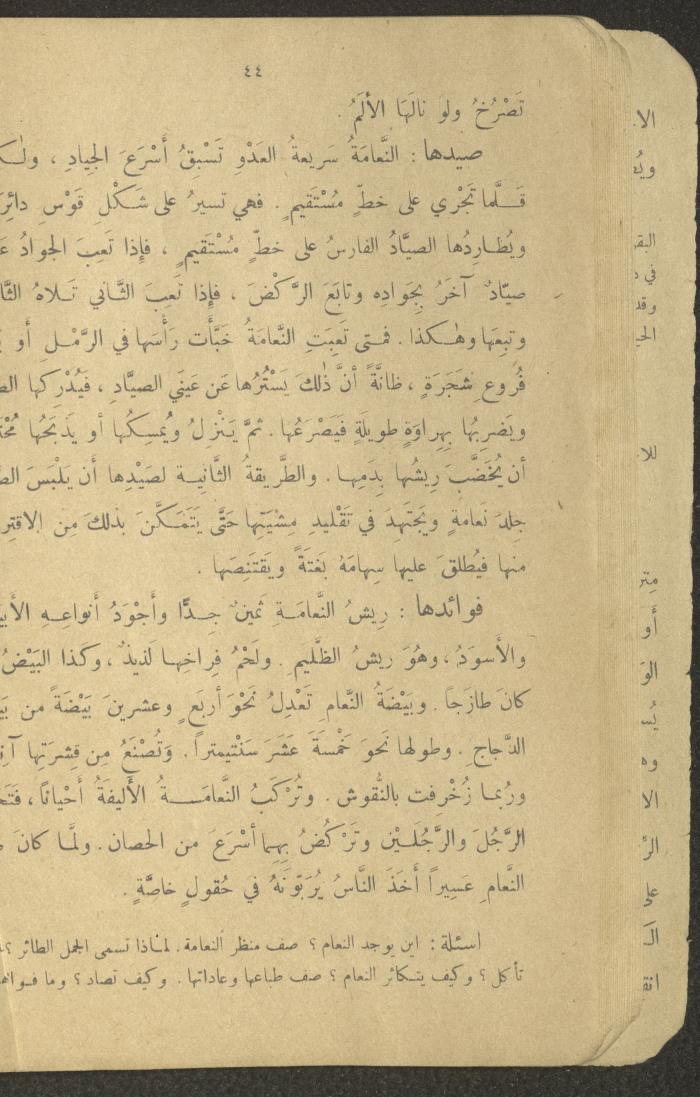 ٤٤
تَصْرُخُ ولو نالَهَا الأَلَمُ .
صيدها : النَّعامَةُ سَريعةُ العَدْوِ تَسْبِقُ أَسْرَعَ الجِيادِ ،
قَلَّما تَجْري على خطٍّ مُسْتَقيمٍ . فهي تسيرُ على شَكْلِ قَوْسِ
ويُطارِدُها الصيَّادُ الفارسُ على خطٍّ مُسْتَقيمٍ ، فإِذا تَعِبَ الجوادُ
صيّادٌ آخَرُ بِجَوادِه وتابَعَ الرَّكْضَ ، فإِذا تَعِبَ الثَّاني تَلاهُ
وتبِعَها وهكذا . فمتى تَعِبَتِ النَّعامَةُ خَبَّأَت رَأْسَها في الرَّمْلِ أَو
فُروعِ شَجَرَةٍ ، ظانَّةً أَنَّ ذٰلكَ يَسْتُرُها عَن عَيْنَيِ الصيَّادِ ، فَيُدْرِكها
ويَضرِبُها بِهِراوَةٍ طويلَةٍ فَيَصْرَعُها . ثمَّ يَنْزِلُ ويُمسِكُها أو يَذبَحُها
أن يُخَضَّبَ رِيشُها بِدَمِها . والطَّريقةُ الثَّانِيةُ لصَيْدِها أَن يَلْبَسَ
جلدَ نَعامةٍ ويَجتَهِدَ في تَقْليدِ مِشيَتِها حَتَّى يَتَمَكَّنَ بذلكَ مِن
منها فيُطلِقَ عليها سِهامَهُ بَغتَةً ويَقتَنِصَها .
فوائدها : ريشُ النَّعامَةِ ثَمينٌ جدًّا وأَجْوَدُ أَنواعِهِ
والأَسوَدُ ، وهُوَ ريشُ الظَّليمِ . ولَحْمُ فِراخِها لَذيذٌ ، وكَذا البَيْضُ
كانَ طازَجاً . وبَيْضَةُ النَّعامِ تَعْدِلُ نَحْوَ أَربَعٍ وعشرينَ بَيْضَةً من
الدَّجاجِ . وطولها نَحوَ خَمْسَةَ عَشَرَ سَنْتيمتراً . وَتُصْنَعُ مِن قِشرَتِها
ورُبما زُخْرِفت بالنُّقوش . وتُرْكَبُ النَّعامَةُ الأَليفَةُ أَحْياناً ،
الرَّجُلَ والرَّجُلَيْنِ وتَرْكُضُ بهما أَسْرَعَ من الحصان . ولمَّا كانَ
النَّعامِ عَسِيراً أَخَذَ النَّاسُ يُرَبّونَهُ في حُقولٍ خاصَّةٍ .
اسئلة : اين يوجد النعام ؟ صف منظر النعامة . لماذا تسمى الجمل الطائر ؟
تأكل ؟ وكيف يتكاثر النعام ؟ صف طباعها وعاداتها . وكيف تصاد ؟ وما